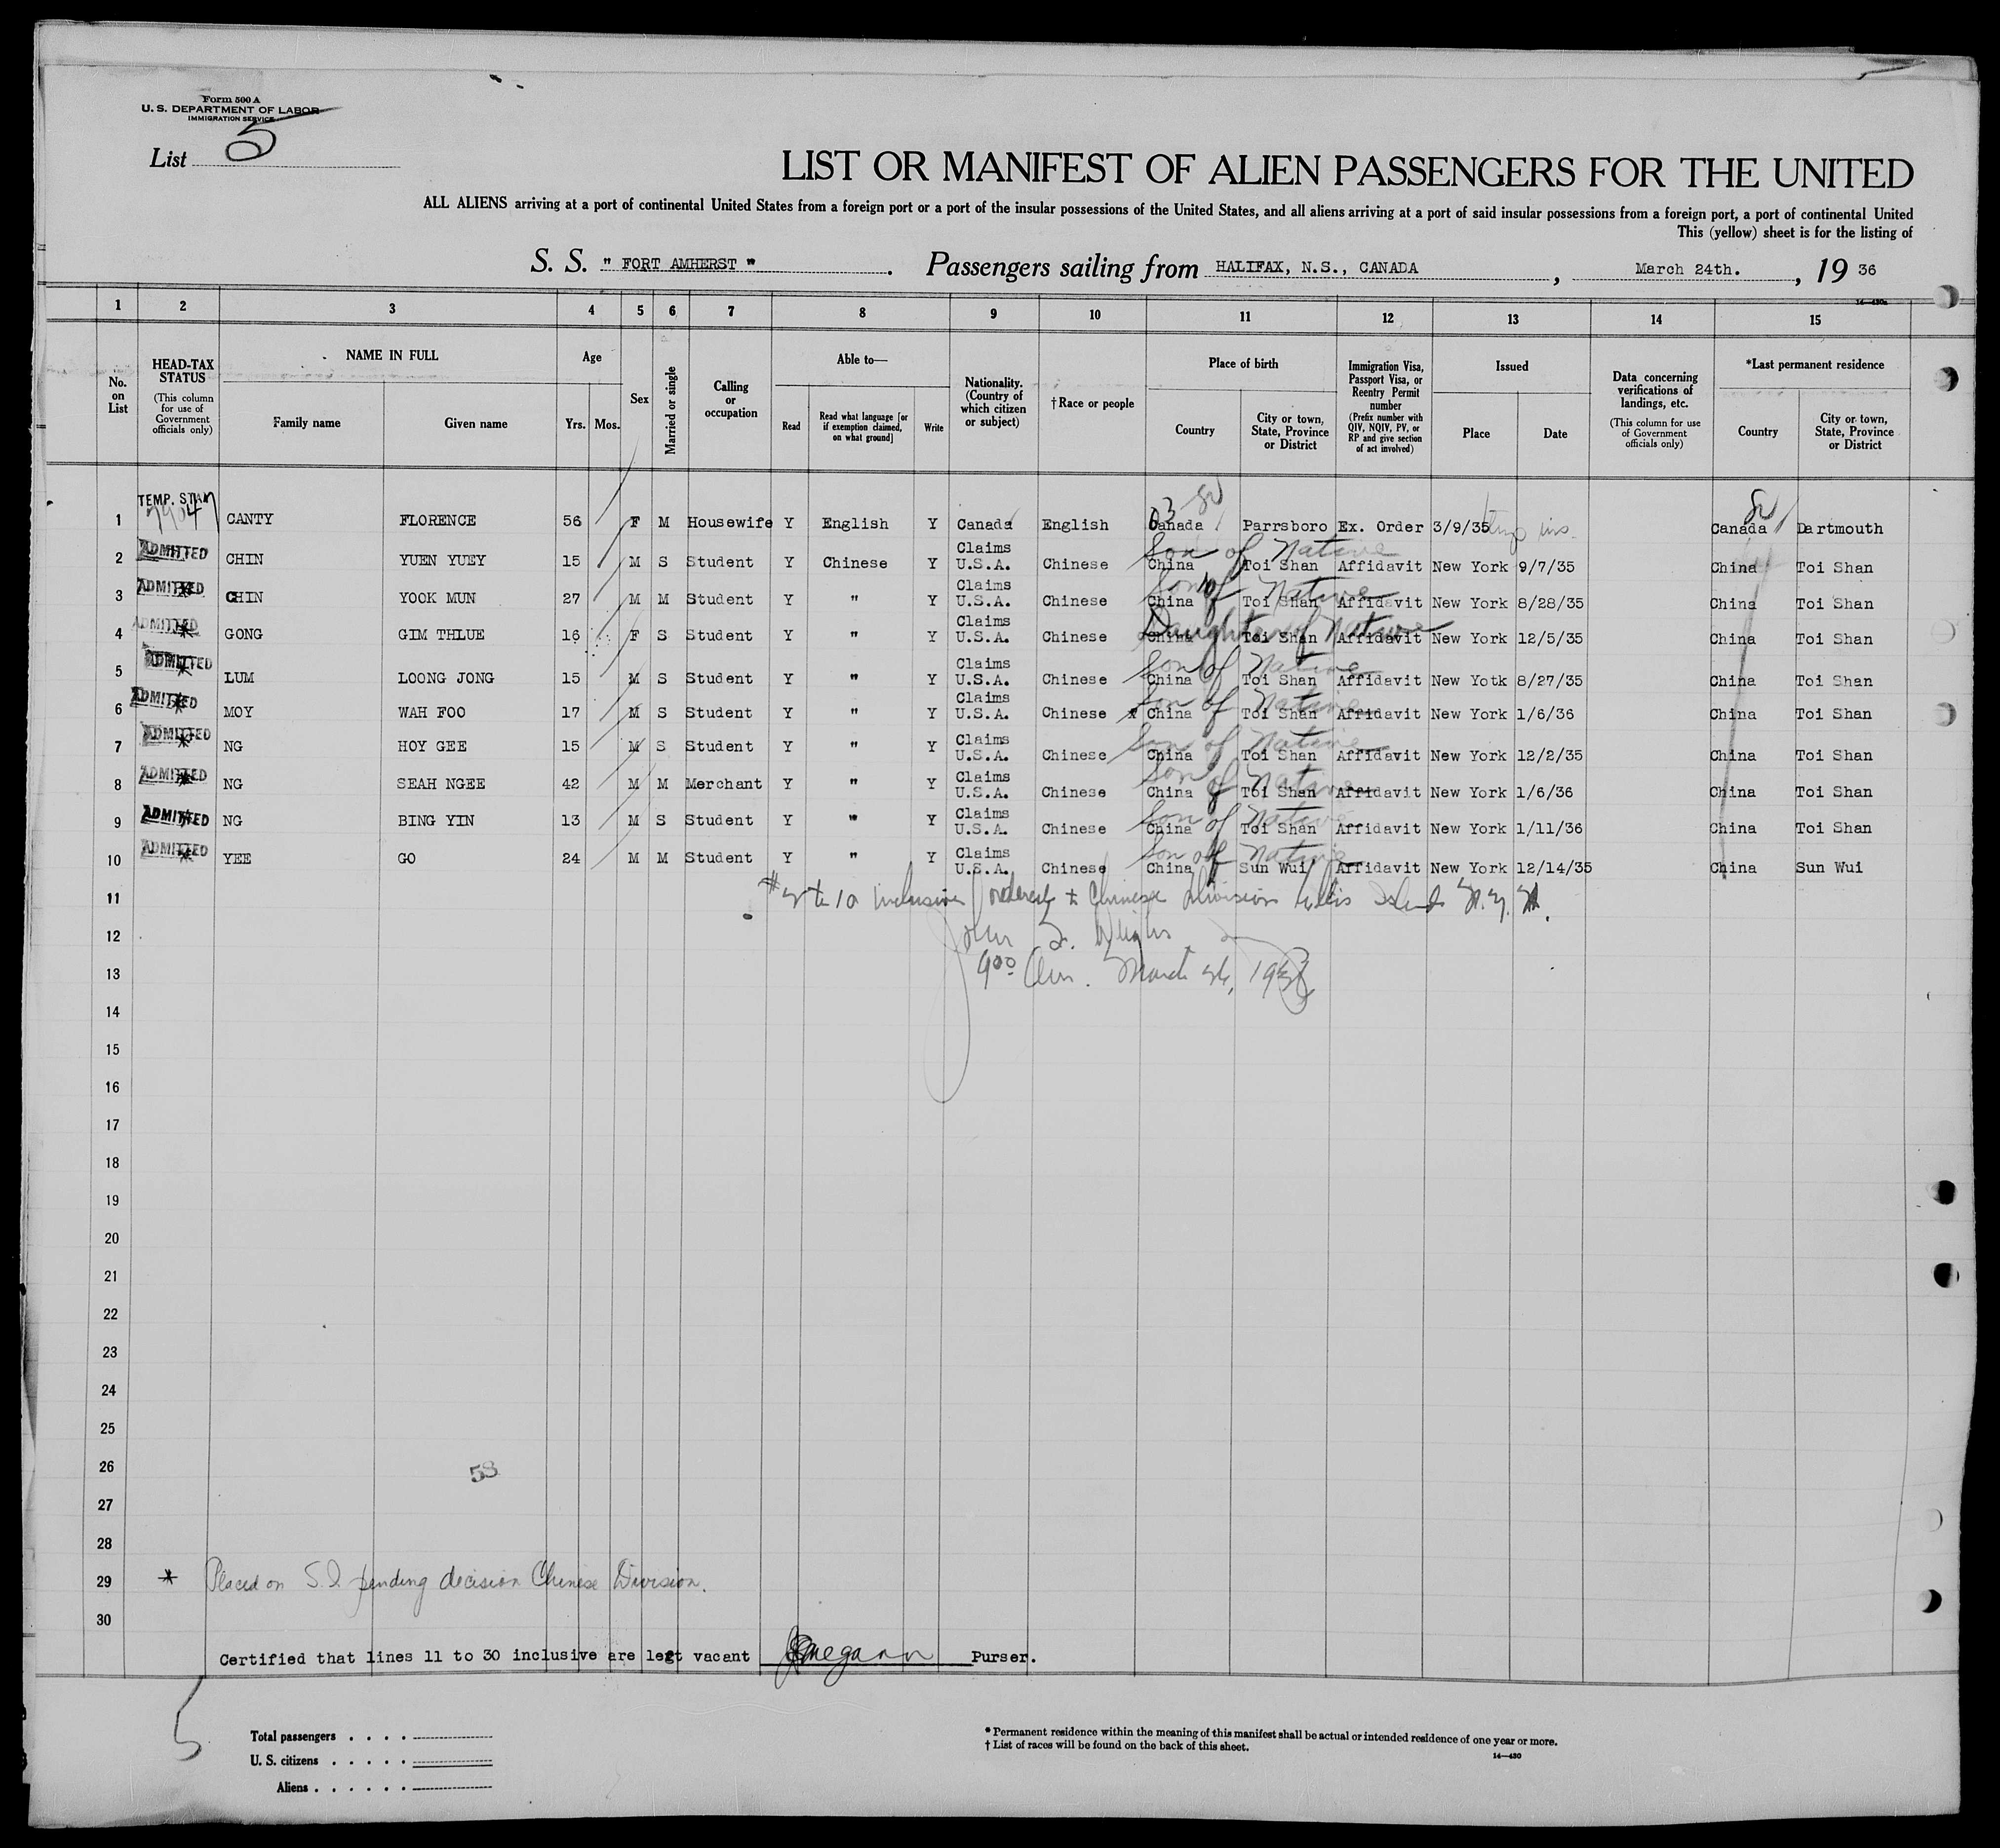 Form 500 A
U. S. DEPARTMENT OF LABOR
IMMIGRATION SERVICE
List 5
LIST OR MANIFEST OF ALIEN PASSENGERS FOR THE UNITED
ALL ALIENS arriving at a port of continental United States from a foreign port or a port of the insular possessions of the United States, and all aliens arriving at a port of said insular possessions from a foreign port, a port of continental United
This (yellow) sheet is for the listing of
S. S. " FORT AMHERST " . Passengers sailing from HALIFAX, N.S., CANADA , March 24th. , 19 36
1 2 3 4 5 6 7 8 9 10 11 12 13 14 15
No. on List
HEAD-TAX STATUS (This column for use of Government officials only)
NAME IN FULL Family name Given name
Age Yrs. Mos.
Sex
Married or single
Calling or occupation
Able to— Read Read what language [or if exemption claimed, on what ground] Write
Nationality. (Country of which citizen or subject)
†Race or people
Place of birth Country City or town, State, Province or District
Immigration Visa, Passport Visa, or Reentry Permit number (Prefix number with QIV, NQIV, PV, or RP and give section of act involved)
Issued Place Date
Data concerning verifications of landings, etc. (This column for use of Government officials only)
*Last permanent residence Country City or town, State, Province or District
TEMP.
1 CANTY FLORENCE 56 F M Housewife Y English Y Canada English Canada Parrsboro Ex. Order 3/9/35 Canada Dartmouth
2 ADMITTED CHIN YUEN YUEY 15 M S Student Y Chinese Y Claims U.S.A. Chinese China Toi Shan Affidavit New York 9/7/35 China Toi Shan
Son of Native
3 ADMITTED CHIN YOOK MUN 27 M M Student Y " Y Claims U.S.A. Chinese China Toi Shan Affidavit New York 8/28/35 China Toi Shan
Son of Native
4 ADMITTED GONG GIM THLUE 16 F S Student Y " Y Claims U.S.A. Chinese China Toi Shan Affidavit New York 12/5/35 China Toi Shan
Daughter of Native
5 ADMITTED LUM LOONG JONG 15 M S Student Y " Y Claims U.S.A. Chinese China Toi Shan Affidavit New Yotk 8/27/35 China Toi Shan
Son of Native
6 ADMITTED MOY WAH FOO 17 M S Student Y " Y Claims U.S.A. Chinese x China Toi Shan Affidavit New York 1/6/36 China Toi Shan
Son of Native
7 ADMITTED NG HOY GEE 15 M S Student Y " Y Claims U.S.A. Chinese China Toi Shan Affidavit New York 12/2/35 China Toi Shan
Son of Native
8 ADMITTED NG SEAH NGEE 42 M M Merchant Y " Y Claims U.S.A. Chinese China Toi Shan Affidavit New York 1/6/36 China Toi Shan
Son of Native
9 ADMITTED NG BING YIN 13 M S Student Y " Y Claims U.S.A. Chinese China Toi Shan Affidavit New York 1/11/36 China Toi Shan
Son of Native
10 ADMITTED YEE GO 24 M M Student Y " Y Claims U.S.A. Chinese China Sun Wui Affidavit New York 12/14/35 China Sun Wui
Son of Native
11 to 10 inclusive Chinese Division Ellis Island N.Y.
12
13 9 00 am. March 26, 1936
14
15
16
17
18
19
20
21
22
23
24
25
26 58
27
28
29 * Placed on S.I. pending decision Chinese Division.
30
Certified that lines 11 to 30 inclusive are left vacant Purser.
5
Total passengers . . . .
U. S. citizens . . . . .
Aliens . . . . . .
* Permanent residence within the meaning of this manifest shall be actual or intended residence of one year or more.
† List of races will be found on the back of this sheet.
14—430